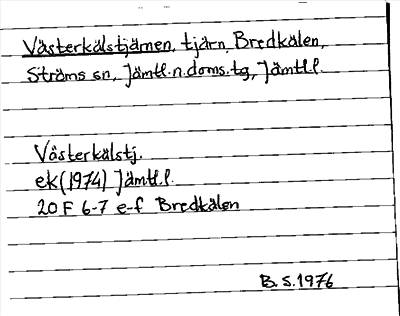 Västerkälstjärnen, tjärn, Bredkälen,
Ströms sn, Jämtl.n.doms.tg, Jämtl.l.
Västerkälstj.
ek(1974) Jämtl.l.
20 F 6-7 e-f Bredkälen
B.S.1976